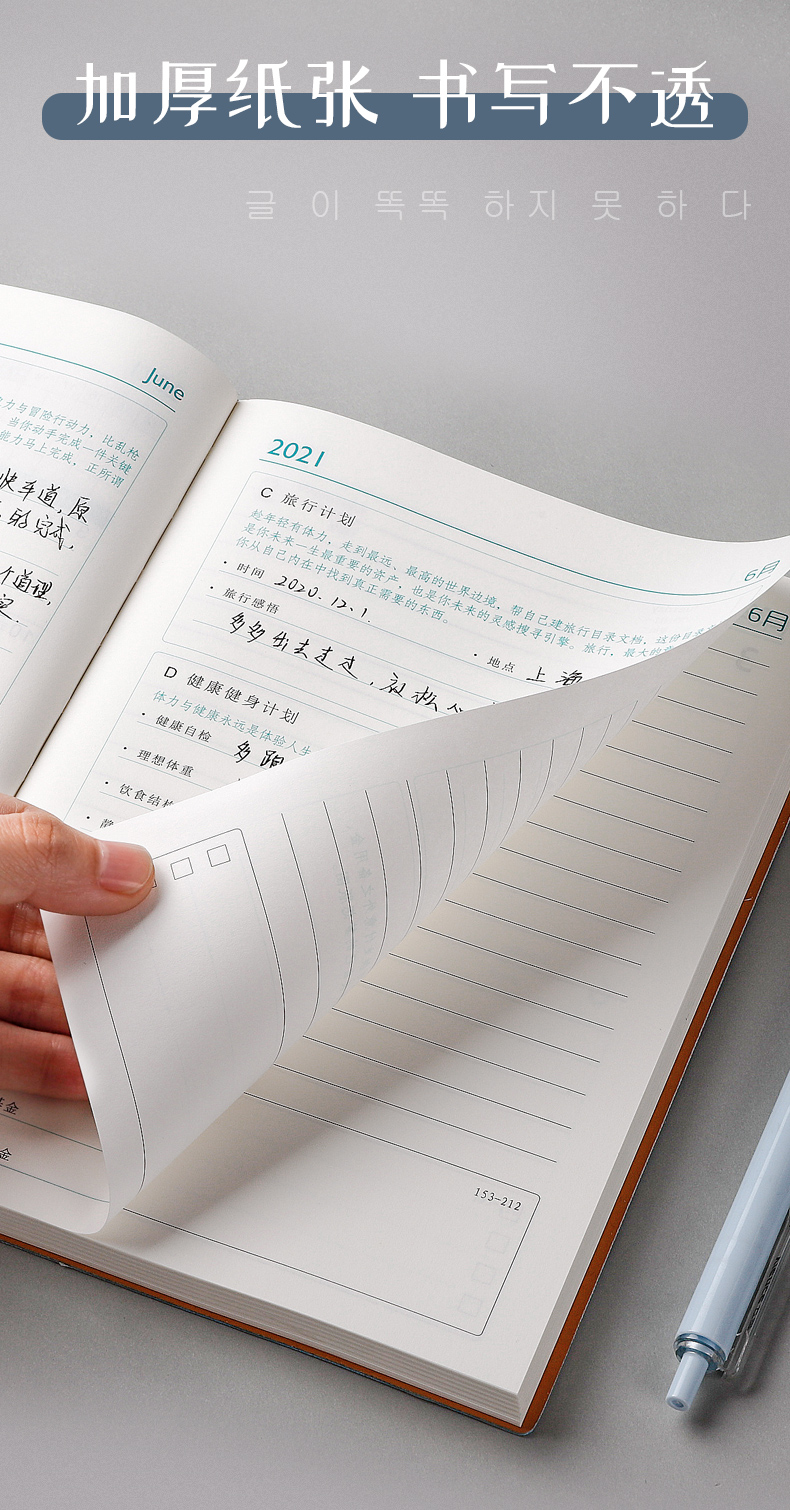 加厚纸张 书写不透
글 이 똑똑 하지 못 하 다
June
力与冒险行动力，比乱枪
当你动手完成一件关键
能力马上完成，正所谓
快车道，原
的完成，
个道理，
2021
C 旅行计划
趁年轻有体力，走到最远、最高的世界边境，帮自己建旅行目录文档，这份目录
是你未来一生最重要的资产，也是你未来的灵感搜寻引擎。旅行，最大的
你从自己内在中找到真正需要的东西。
· 时间 2020.12.1.
· 地点 上海
· 旅行感悟
多多出去走走，放松
D 健康健身计划
体力与健康永远是体验人生
· 健康自检 多跑
· 理想体重
· 饮食结构
6月
6月
基金
金
153-212